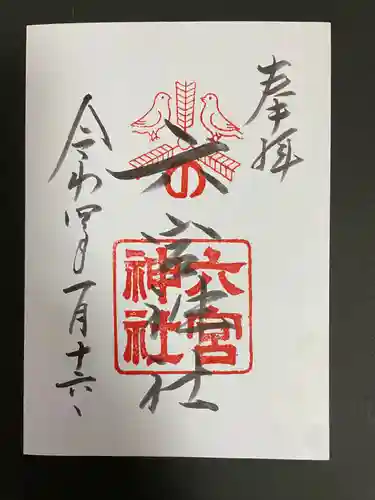 奉拝
六の宮神社
六宮
神社
令和四年一月十六日